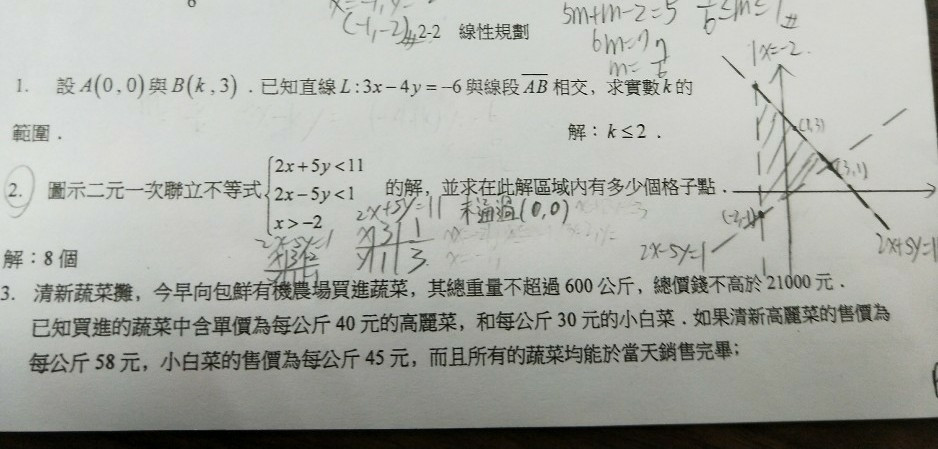 (-1,-2)
5m+m-2=5
6m=7
2-2 線性規劃
x=-2
1. 設 A(0,0)與 B(k,3).已知直線 L:3x-4y=-6與線段 AB 相交，求實數 k 的
範圍.
解：k≤2.
(1,3)
(3,1)
2x+5y<11
2. 圖示二元一次聯立不等式 2x-5y<1 的解，並求在此解區域內有多少個格子點.
x>-2
2x+5y=11 未通過(0,0)
x 3 1
y 1 3
2x-5y=1
2x-5y=1
2x+5y=11
解：8 個
3. 清新蔬菜攤，今早向包鮮有機農場買進蔬菜，其總重量不超過 600 公斤，總價錢不高於 21000 元.
已知買進的蔬菜中含單價為每公斤 40 元的高麗菜，和每公斤 30 元的小白菜.如果清新高麗菜的售價為
每公斤 58 元，小白菜的售價為每公斤 45 元，而且所有的蔬菜均能於當天銷售完畢；